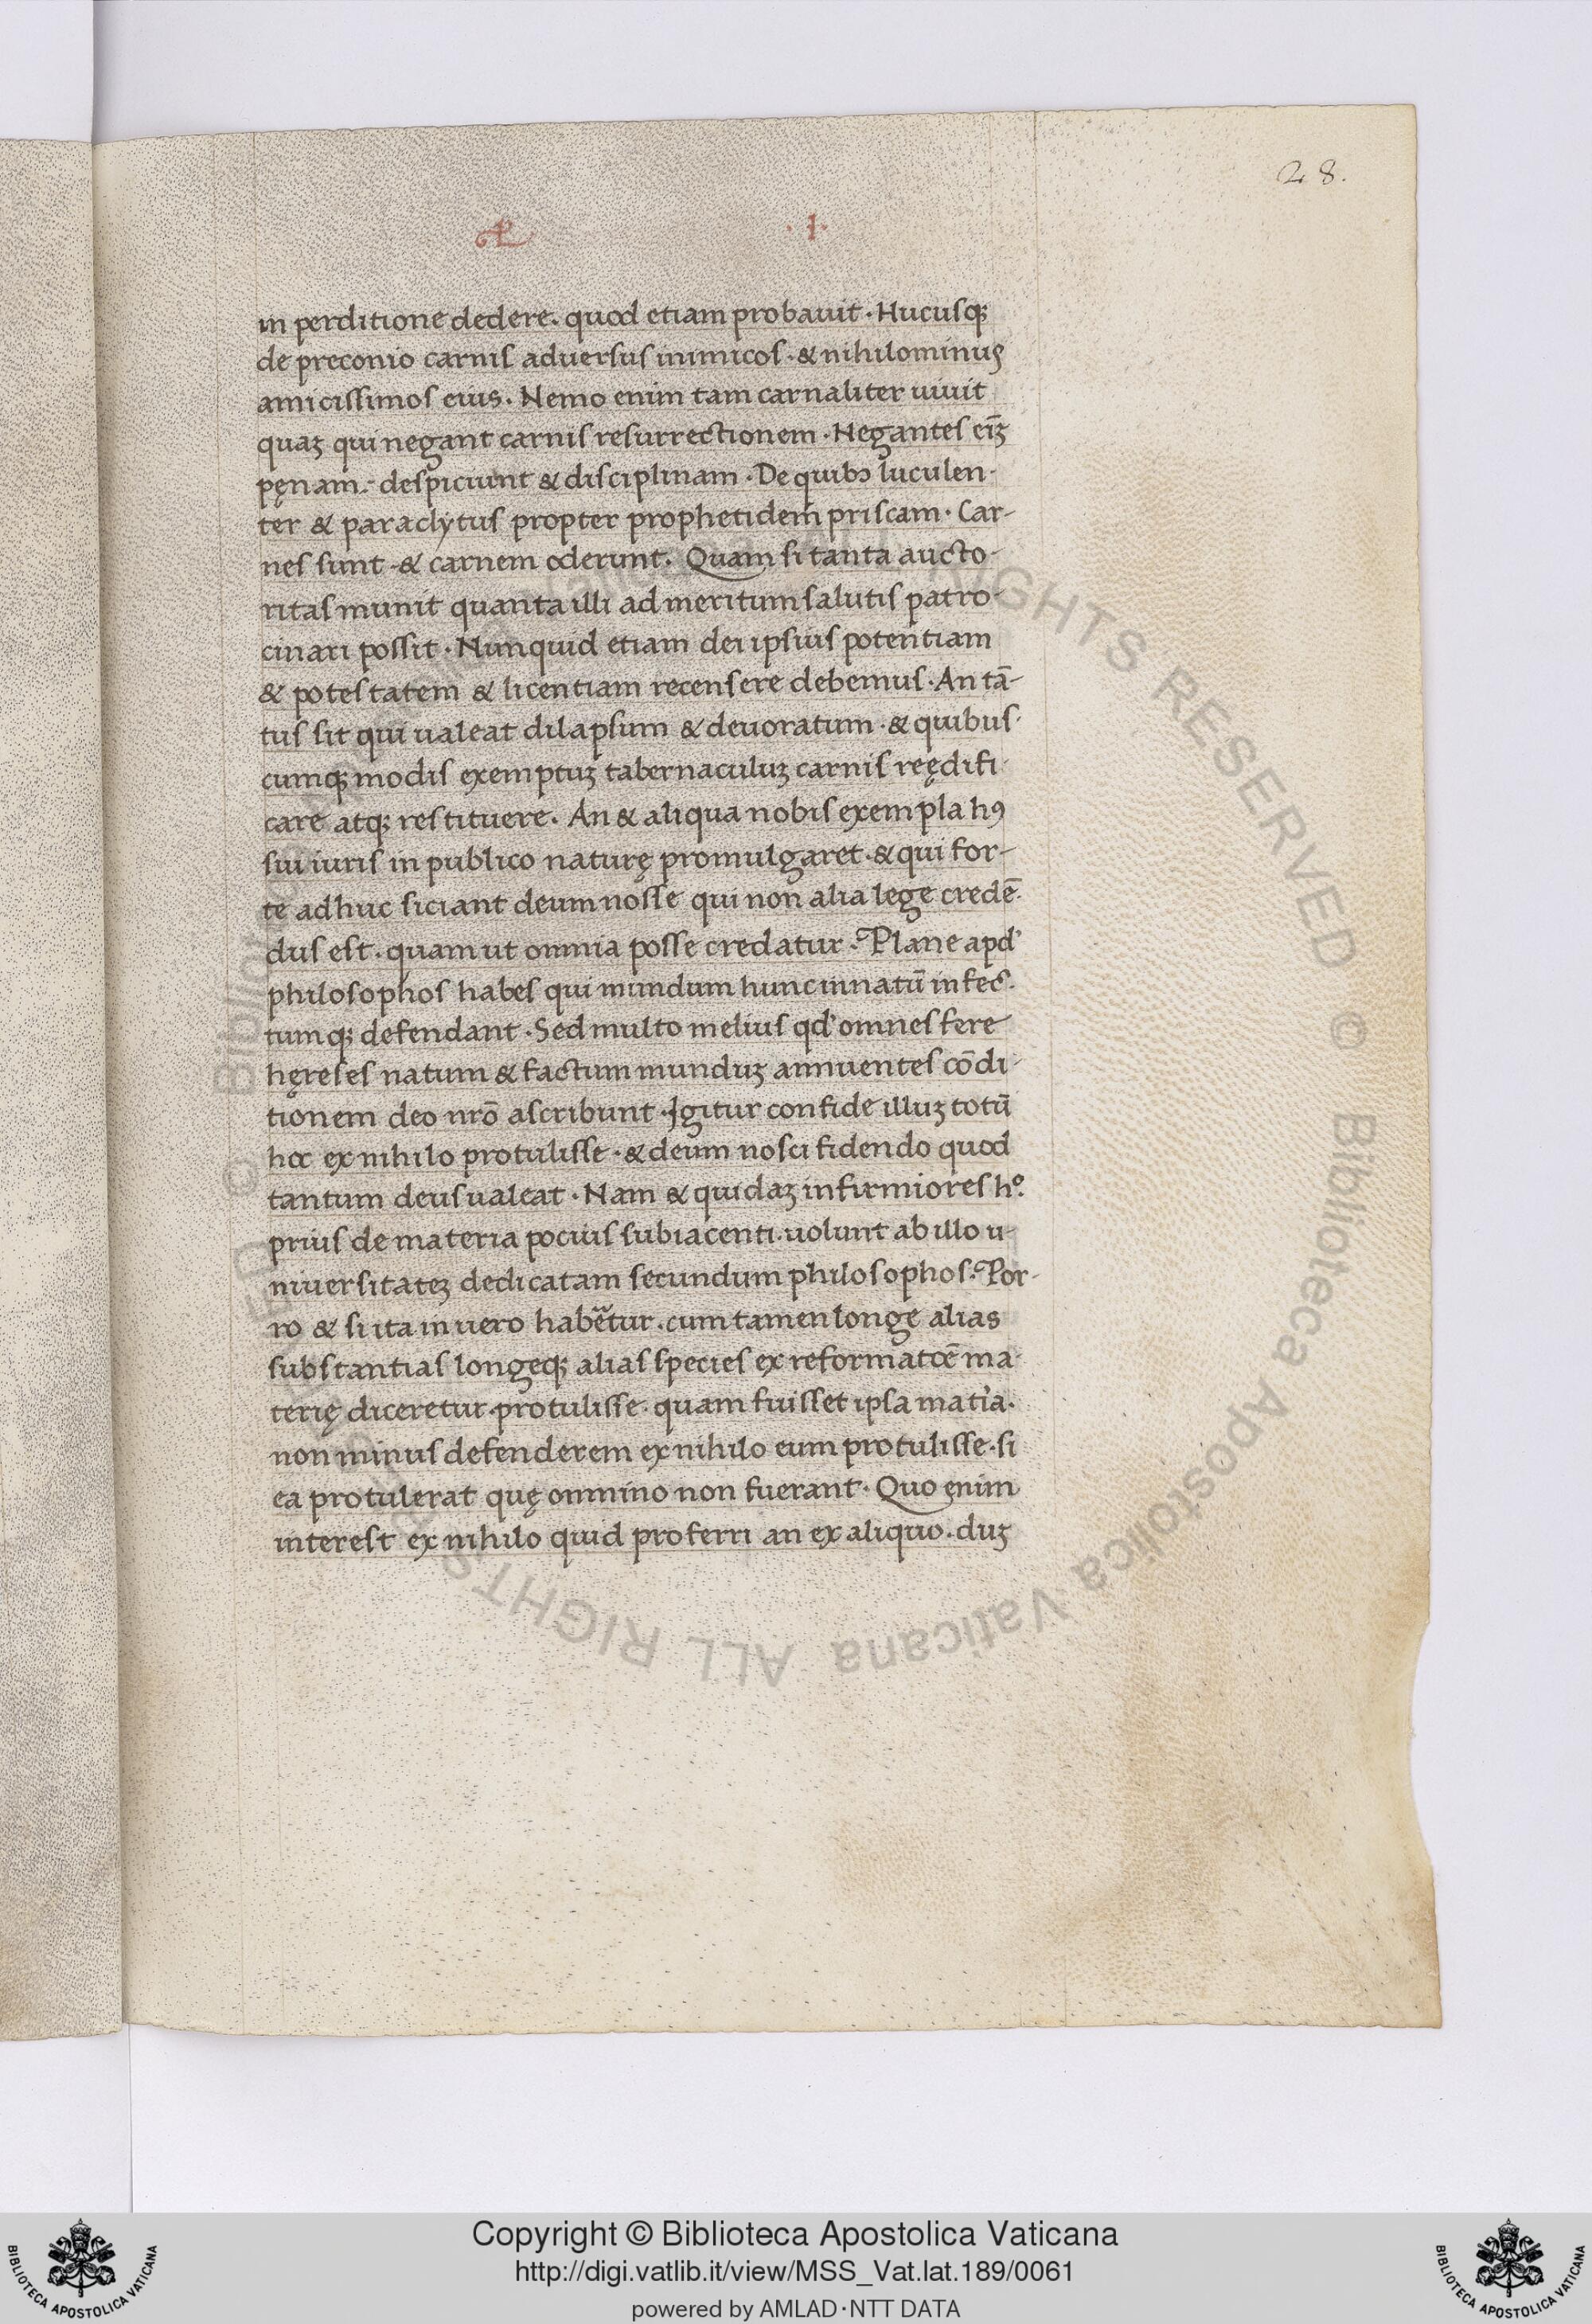 28.
R · I ·
in perditione dedere. quod etiam probauit · Hucusq;
de preconio carnis aduersus inimicos · & nihilominus
amicissimos eius. Nemo enim tam carnaliter uiuit
quaꝫ qui negant carnis resurrectionem · Negantes eīꝫ
pęnam · despiciunt & disciplinam · De quibꝰ luculen-
ter & paraclytus propter prophetidem priscam · Car-
nes sunt · & carnem oderunt. Quam si tanta aucto-
ritas munit quanta illi ad meritum salutis patro-
cinari possit · Nunquid etiam dei ipsius potentiam
& potestatem & licentiam recensere debemus · An tā-
tus sit qui ualeat dilapsum & deuoratum · & quibus-
cumq; modis exemptuꝫ tabernaculuꝫ carnis reędifi-
care atq; restituere. An & aliqua nobis exempla hꝰ
sui iuris in publico naturę promulgaret · & qui for-
te adhuc siciant deum nosse qui non alia lege credē-
dus est · quam ut omnia posse credatur · Plane apd'
philosophos habes qui mundum hunc innatū infec-
tumq; defendant · Sed multo melius qd' omnes fere
hęreses natum & factum munduꝫ annuentes cōdi-
tionem deo nrō ascribunt · Igitur confide illuꝫ totū
hoc ex nihilo protulisse · & deum nosci fidendo quod
tantum deus ualeat · Nam & quidaꝫ infirmiores hº.
prius de materia pocius subiacenti uolunt ab illo u-
niuersitateꝫ dedicatam secundum philosophos. Por-
ro & si ita in uero habetur · cum tamen longe alias
substantias longeq; alias species ex reformatōē ma-
terię diceretur · protulisse · quam fuisset ipsa matia.
non minus defenderem ex nihilo eum protulisse · si
ea protulerat quę omnino non fuerant · Quo enim
interest ex nihilo quid proferri an ex aliquo · duꝫ
© Biblioteca Apostolica Vaticana ALL RIGHTS RESERVED
Copyright © Biblioteca Apostolica Vaticana
http://digi.vatlib.it/view/MSS_Vat.lat.189/0061
powered by AMLAD·NTT DATA
BIBLIOTECA APOSTOLICA VATICANA
BIBLIOTECA APOSTOLICA VATICANA